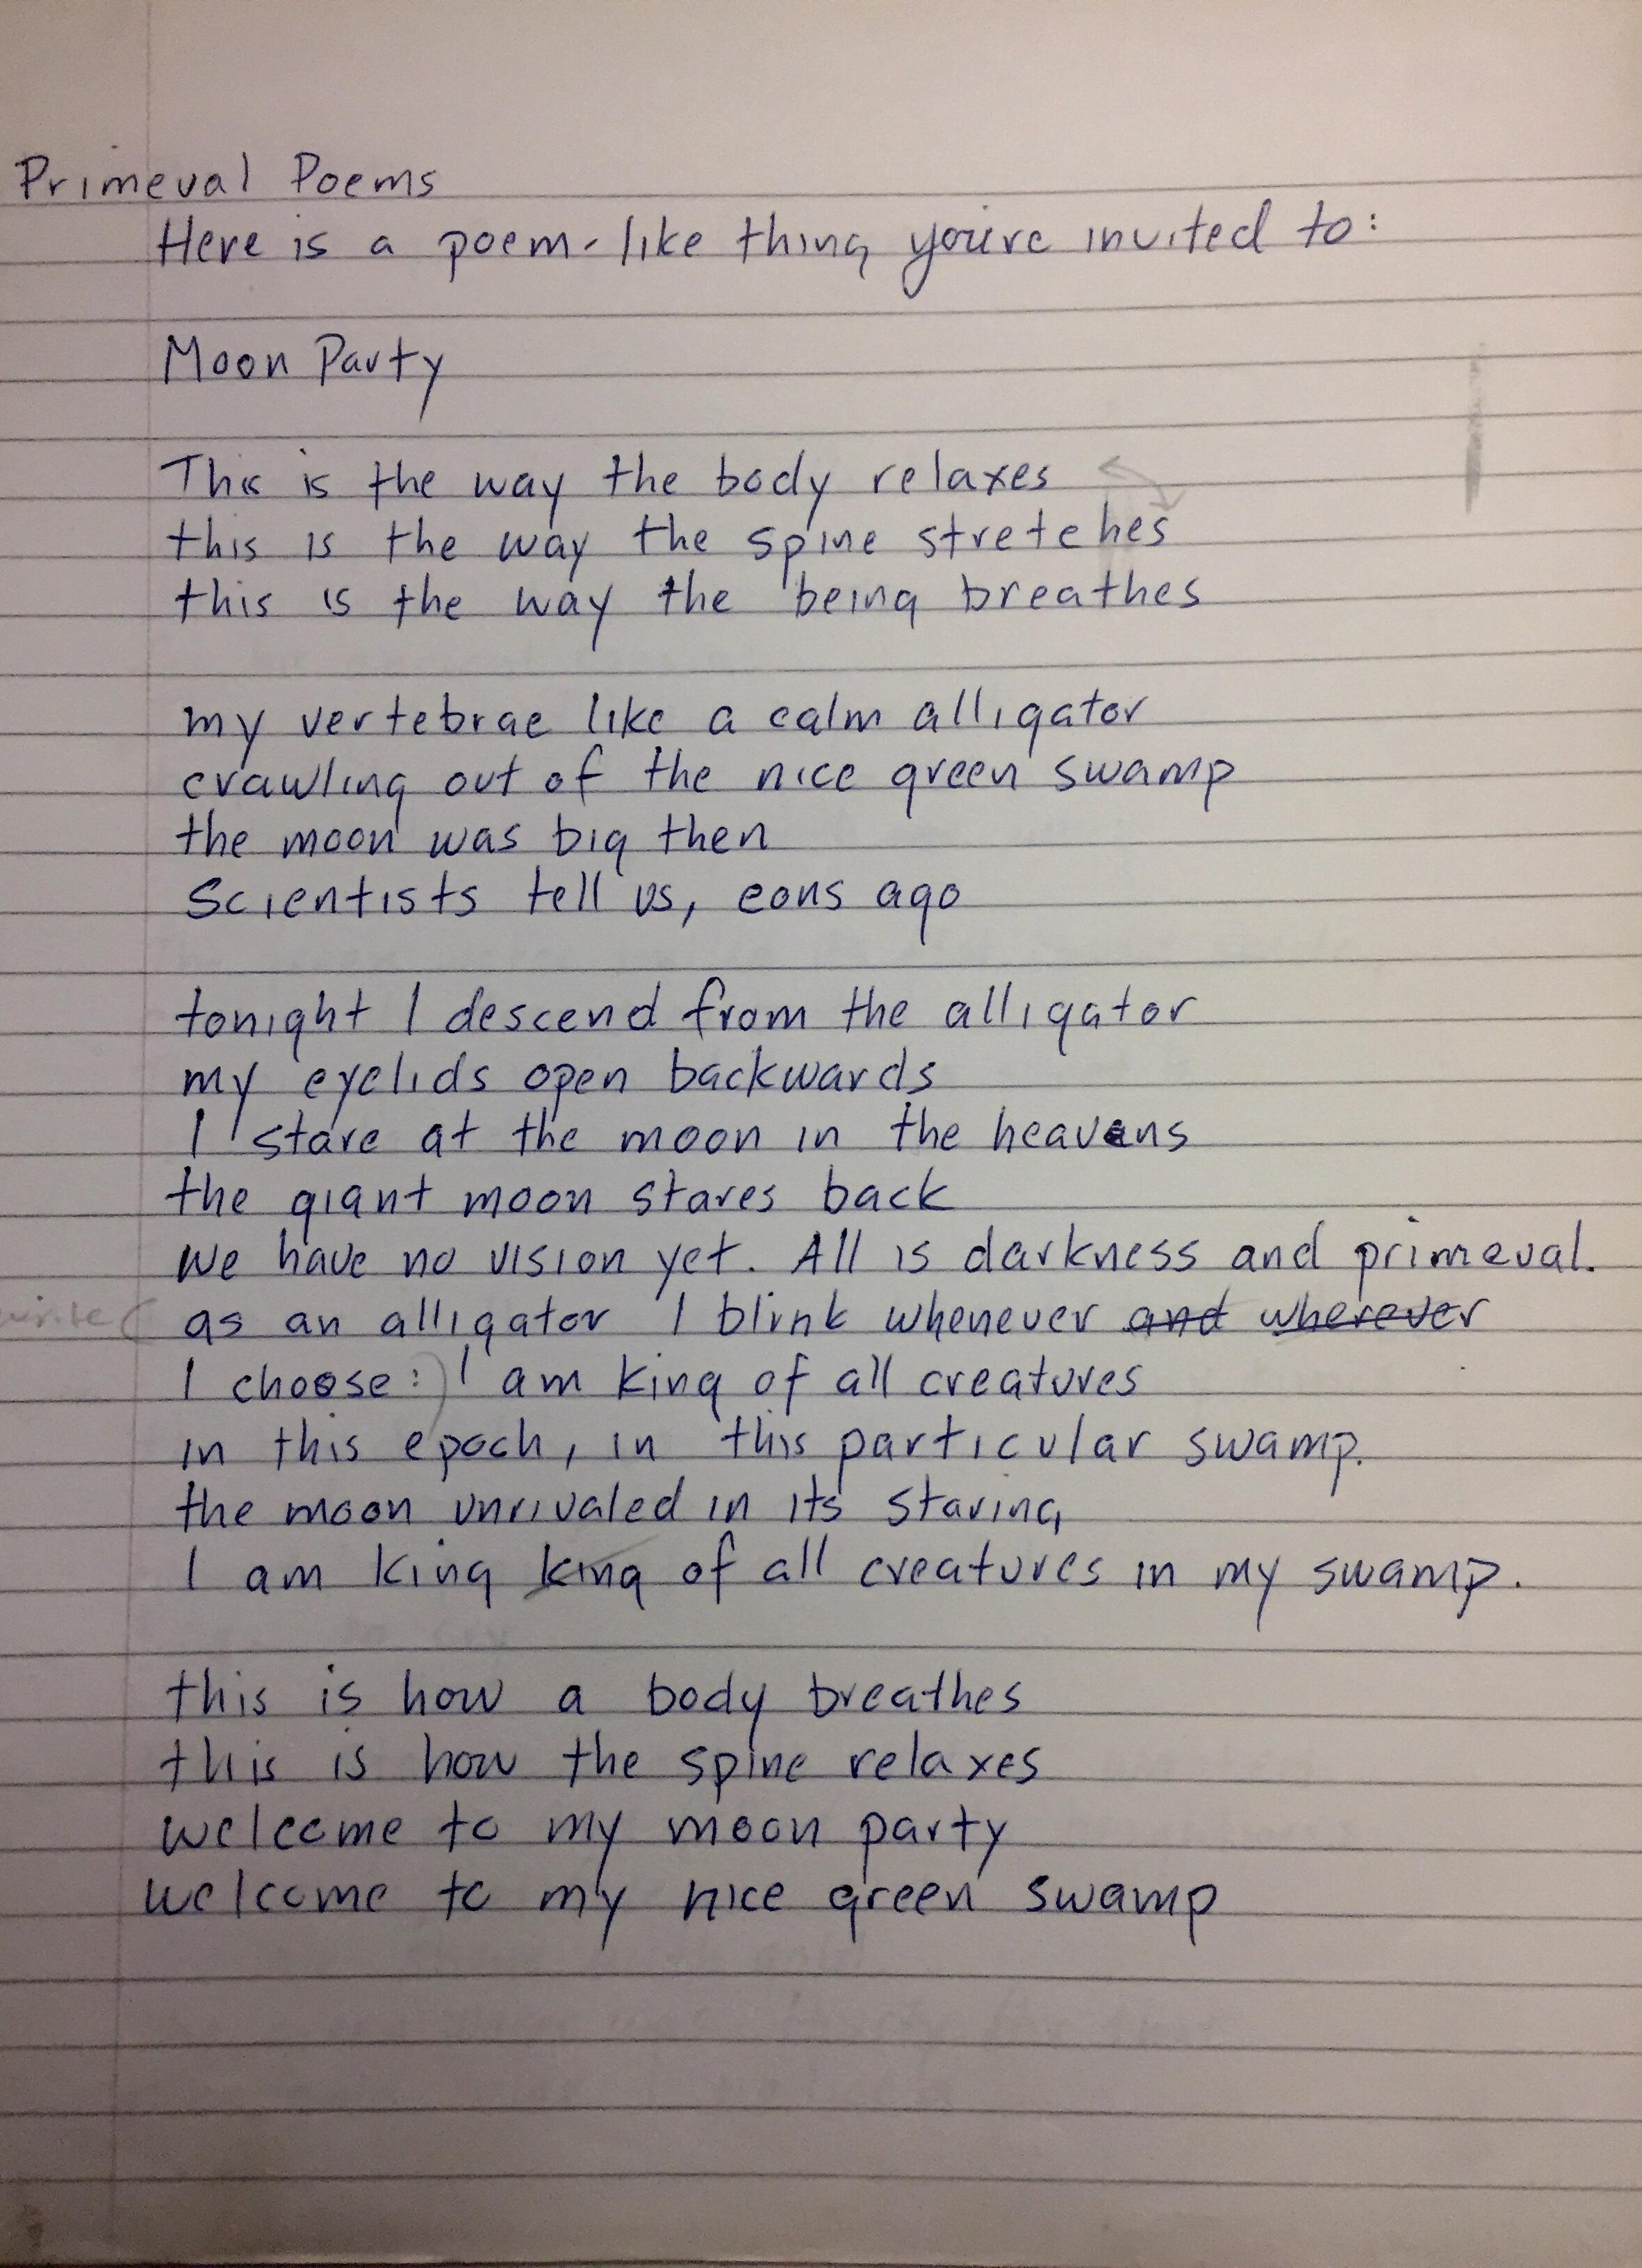 Primeval Poems
Here is a poem-like thing you're invited to:
Moon Party
This is the way the body relaxes
this is the way the spine stretches
this is the way the being breathes
my vertebrae like a calm alligator
crawling out of the nice green swamp
the moon was big then
Scientists tell us, eons ago
tonight I descend from the alligator
my eyelids open backwards
I stare at the moon in the heavens
the giant moon stares back
we have no vision yet. All is darkness and primeval.
write (as an alligator I blink whenever and wherever
I choose:) I am king of all creatures
in this epoch, in this particular swamp.
the moon unrivaled in its staring
I am king king of all creatures in my swamp.
this is how a body breathes
this is how the spine relaxes
welcome to my moon party
welcome to my nice green swamp